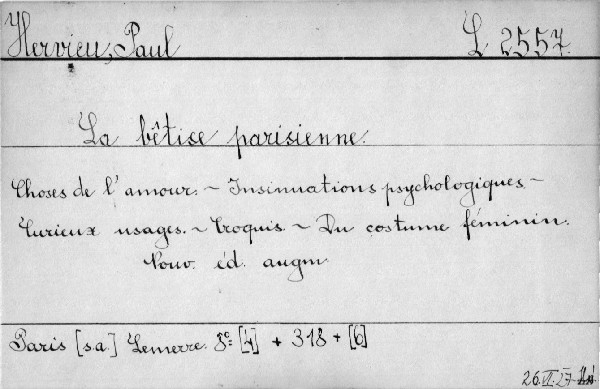 Hervieu, Paul L 2557.
La bêtise parisienne.
Choses de l'amour. ~ Insinuations psychologiques ~
Curieux usages. ~ Croquis. ~ Du costume féminin.
Nouv. éd. augm
Paris [s.a.] Lemerre. 8° [4] + 318 + [6]
26.VI.27.